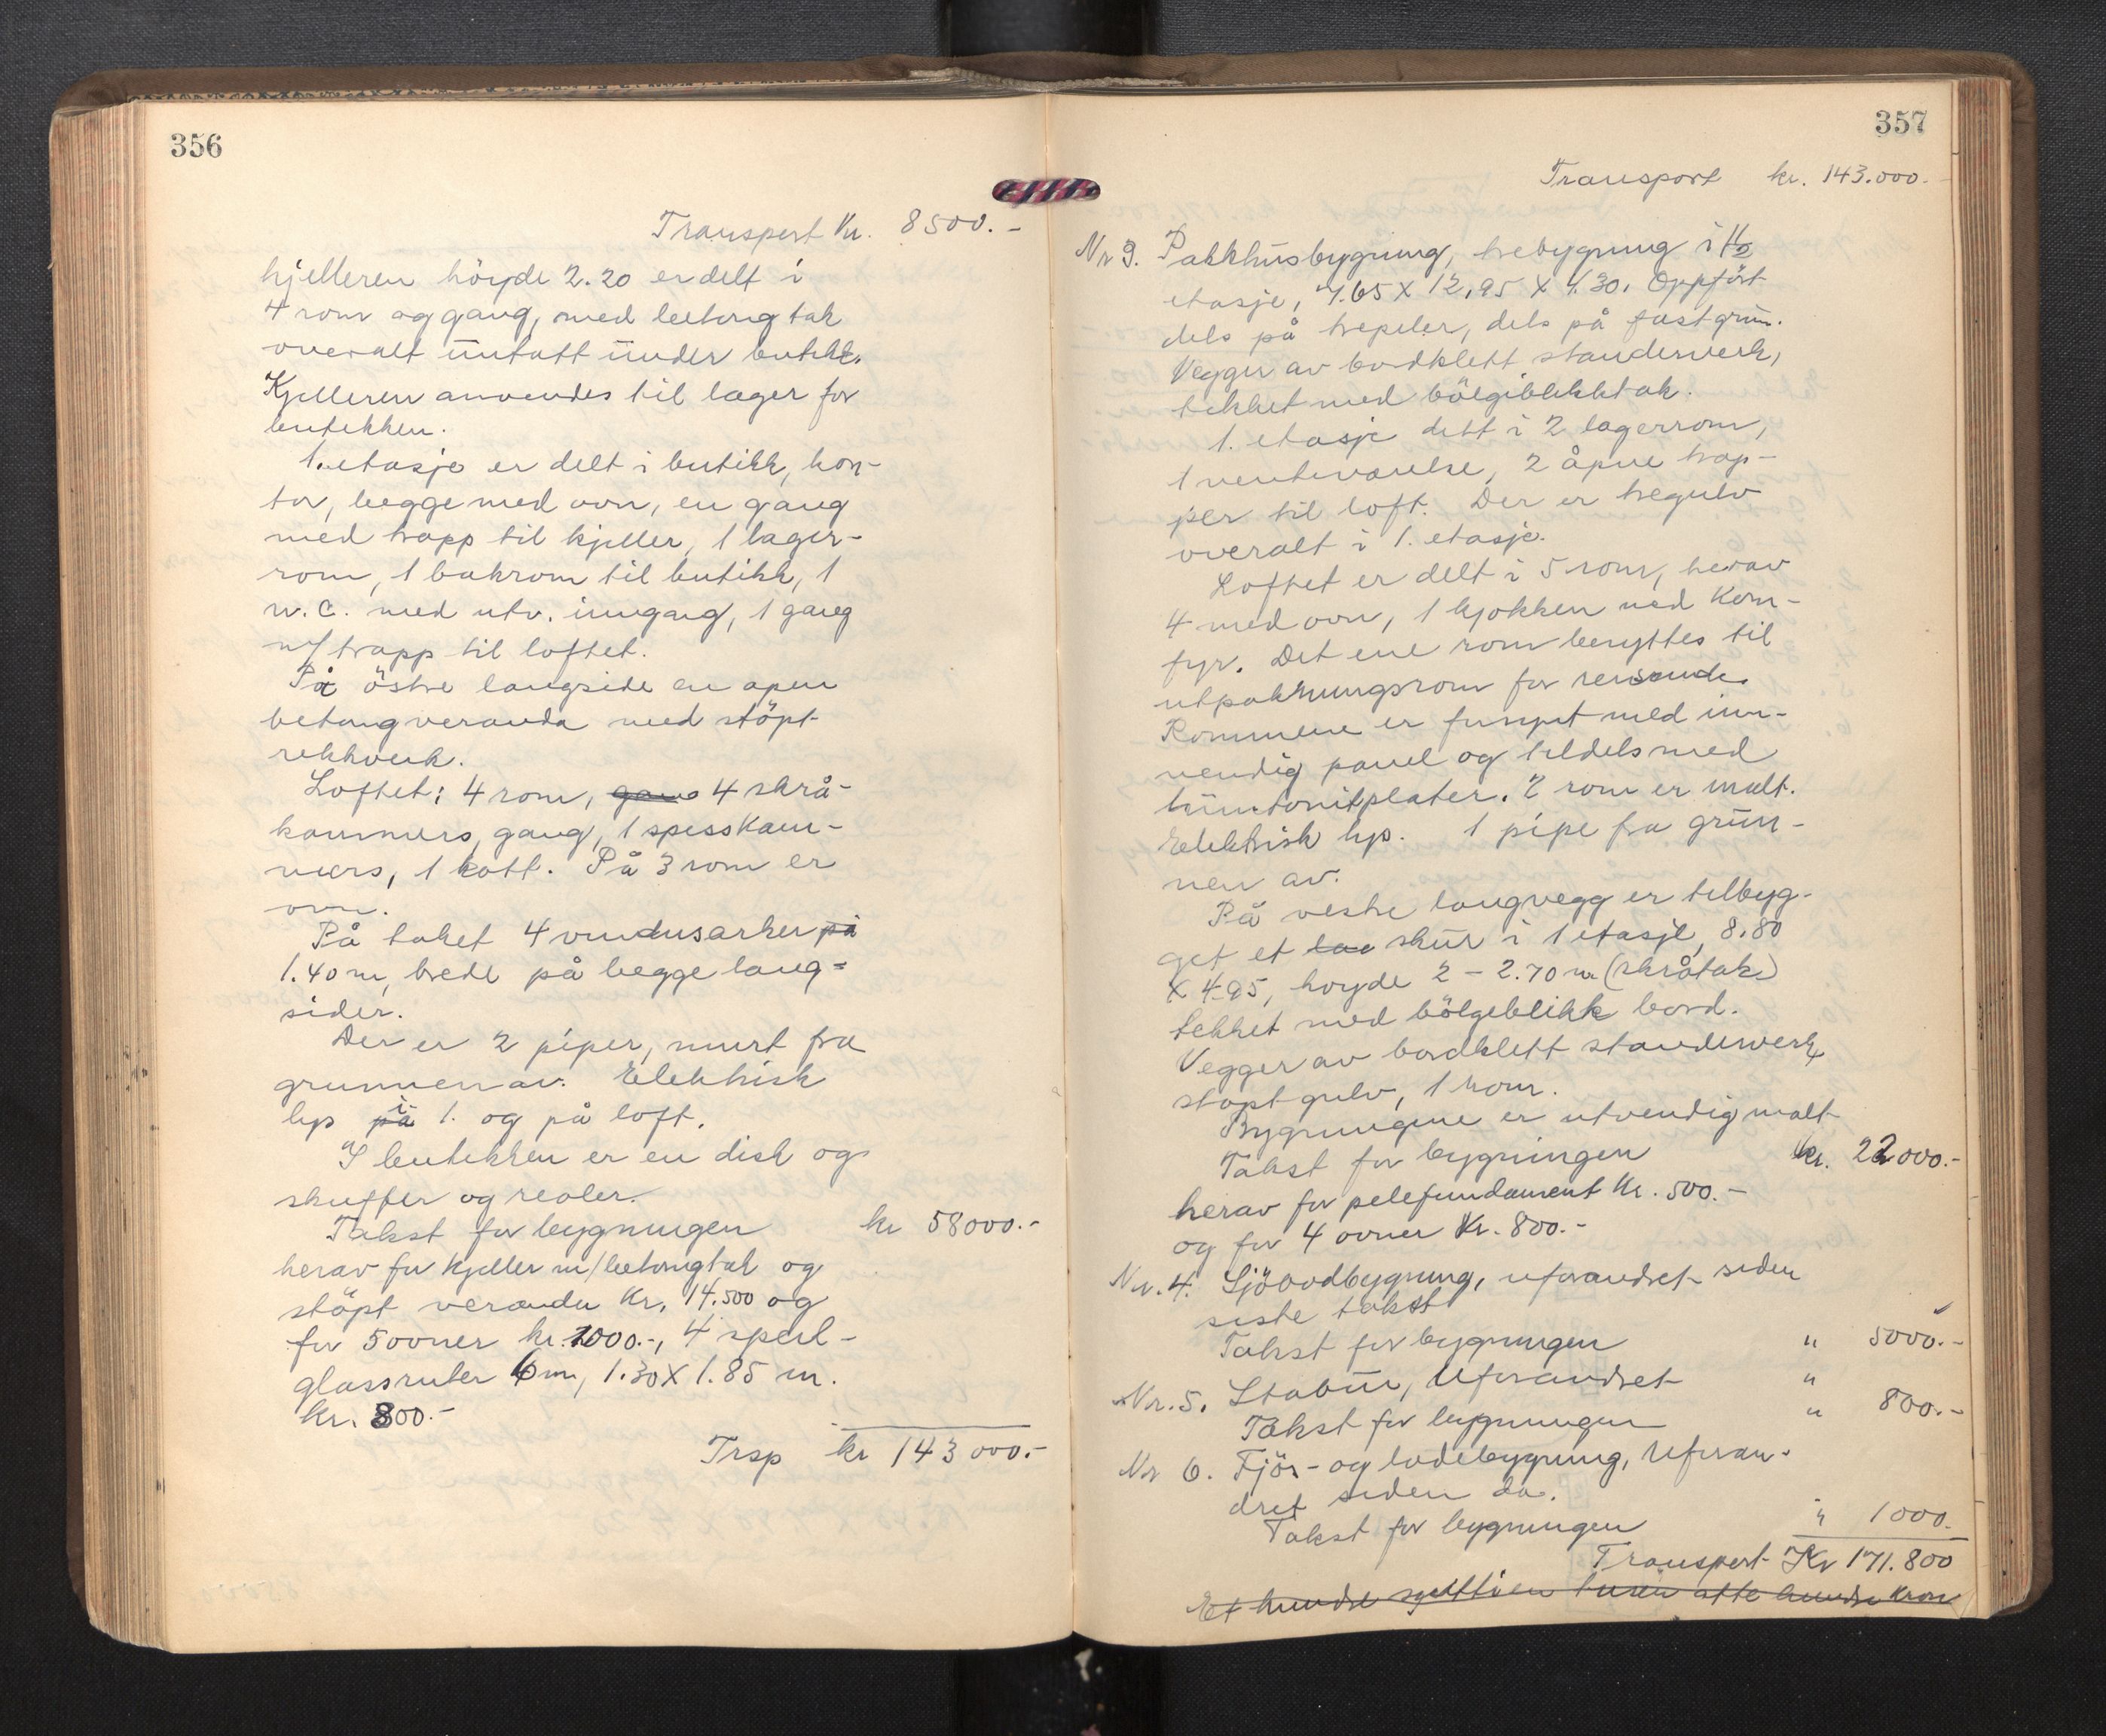 356
Transport Kr. 8500.-
kjelleren höyde 2.20 er delt i
4 rom og gang, med betong tak
overalt üntatt ünder butikk.
Kjelleren anvendes til lager for
butikken.
1. etasje er delt i butikk, kon-
tor, begge med ovn, en gang
med trapp til kjeller, 1 lager-
rom, 1 bakrom til butikk, 1
w.c. med utv. inngang, 1 gang
m/ trapp til loftet.
På östre langside en åpen
betongveranda med stöpt
rekkverk.
Loftet: 4 rom, gang 4 skrå-
kammers, gang, 1 spisskam-
mers, 1 kott. På 3 rom er
ovn.
På taket 4 vindusarker på
1.40 m, brede på begge lang-
sider.
Der er 2 piper, murt fra
grunnen av. Elektrisk
lys på i 1. og på loft.
I butikken er en disk og
skuffer og reoler.
Takst for bygningen kr 58000.-
herav for kjeller m/betongtak og
stöpt veranda Kr. 14.500 og
for 5 ovner kr. 1000.-, 4 speil-
glassruter 6 m, 1.30 X 1.85 m.
kr. 800.-
Trsp kr 143000.-
357
Transport kr. 143.000.-
Nr 3. Pakkhüsbygning, trebygning i 1 1/2
etasje, 7.65 X 12,95 X 4.30. Oppfört
dels på trepeler, dels på fast grün.
Vegger av bordklett standerverk,
tekket med bölgeblikktak.
1. etasje delt i 2 lagerrom,
1 venteværelse, 2 åpne trap-
per til loft. Der er tregulv
overalt i 1. etasje.
Loftet er delt i 5 rom, herav
4 med ovn, 1 kjokken med Kom-
fyr. Det ene rom benyttes til
utpakningsrom for reisende.
Rommene er funynt med inn-
vendig panel og tildels med
hüntonitplater. 2 rom er malt.
Elektrisk lys. 1 pipe fra grün-
nen av.
På vestre langvegg er tilbyg-
get et skür i 1 etasje, 8.80
X 4.95, hoyde 2 - 2.70 m (skråtak)
tekket med bölgeblikk bord.
Vegger av bordklett standerverk,
stopt gulv, 1 rom.
Bygningene er utvendig malt
Takst for bygningen kr. 22000.-
herav for pelefundament Kr. 500.-
og for 4 ovner Kr. 800.-
Nr. 4. Sjöbodbygning, uforandret siden
siste takst
Takst for bygningen " 5000.-
Nr. 5. Stabür, Uforandret "
Takst for bygningen " 800.-
Nr 6. Fjös- og lödebygning, Uforan-
dret siden da.
Takst for bygningen " 1000.
Transport Kr 171.800
Et hundre sytti en tusen åtte hundre kron